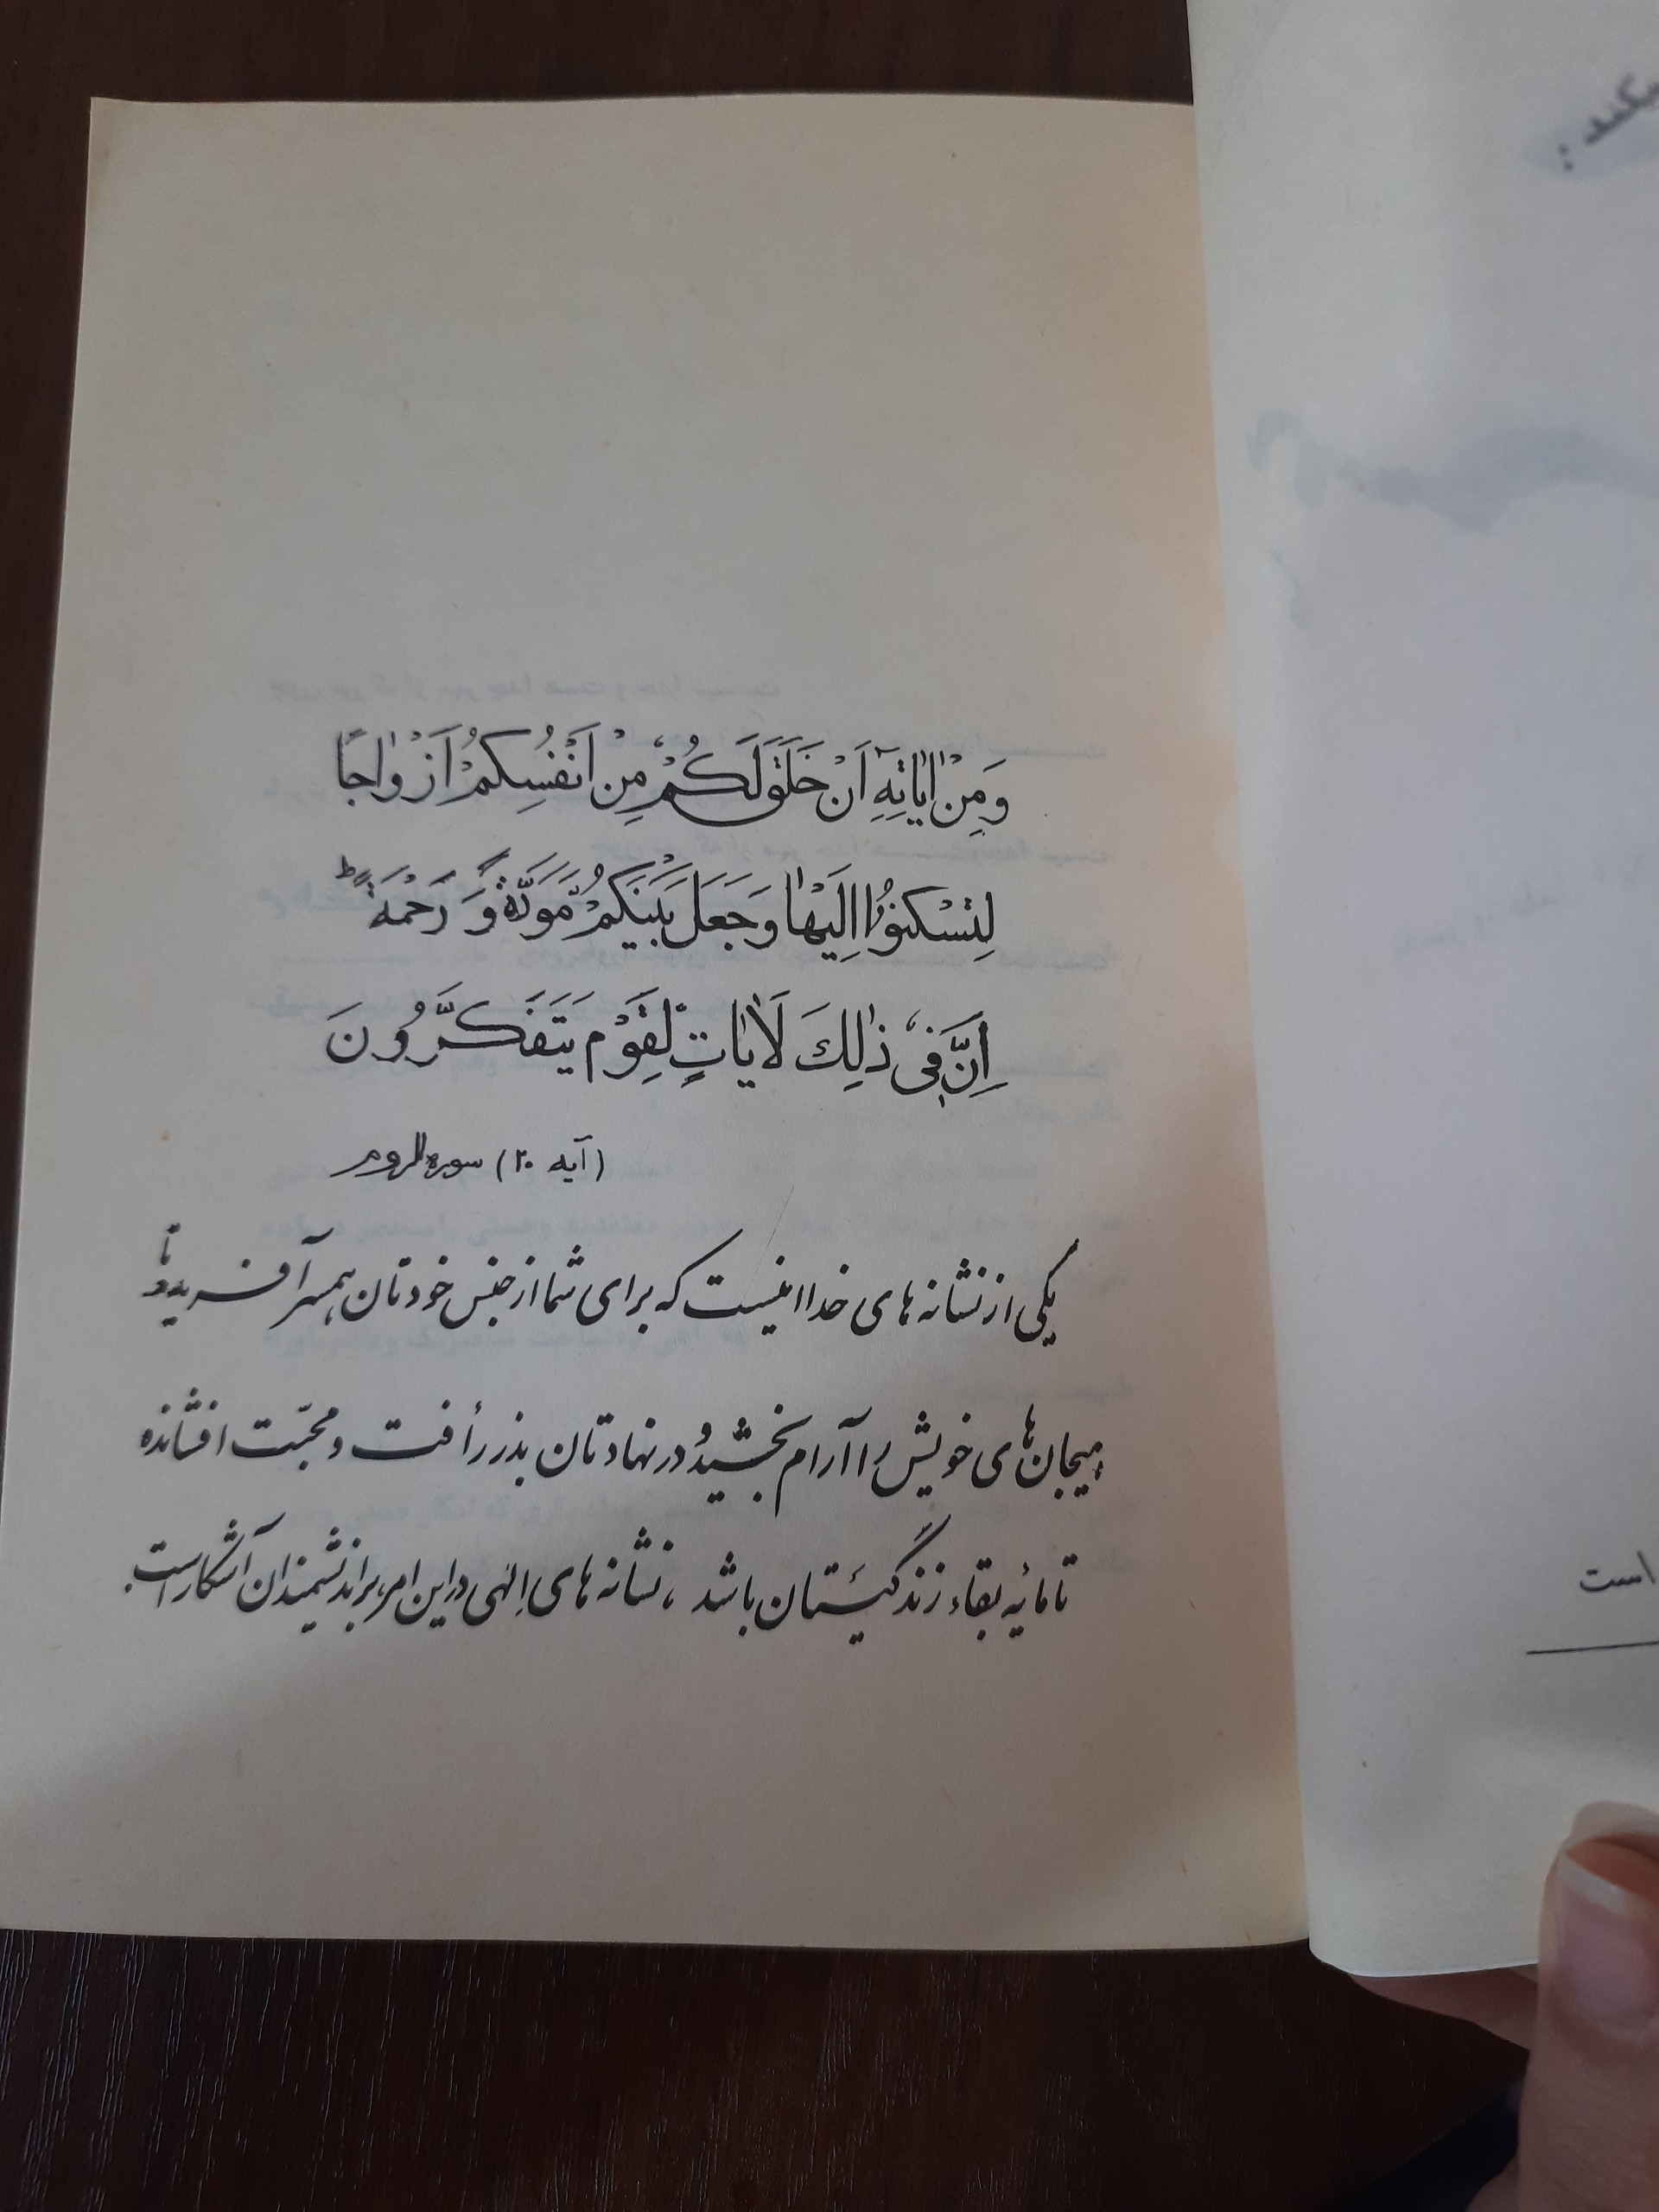 وَمِنْ اٰیٰاتِهِٓ اَنْ خَلَقَ لَکُمْ مِنْ اَنْفُسِکُمْ اَزْوٰاجًا
لِتَسْکُنُوٓا اِلَیْهٰا وَجَعَلَ بَیْنَکُمْ مَّوَدَّةً وَّ رَحْمَةً ط
اِنَّ فِی ذٰلِکَ لَاٰیٰاتٍ لِّقَوْم یَتَفَکَّرُونَ
(آیه ۲۰) سوره الروم
یکی از نشانه های خدا اینست که برای شما از جنس خودتان همسر آفریده تا
هیجان های خویش را آرام بخشید و در نهادتان بذر رأفت و محبّت افشانده
تا مایٔه بقاء زندگیتان باشد ، نشانه های اِلهی در این امر بر اندیشمندان آشکار است.
یکند :
است